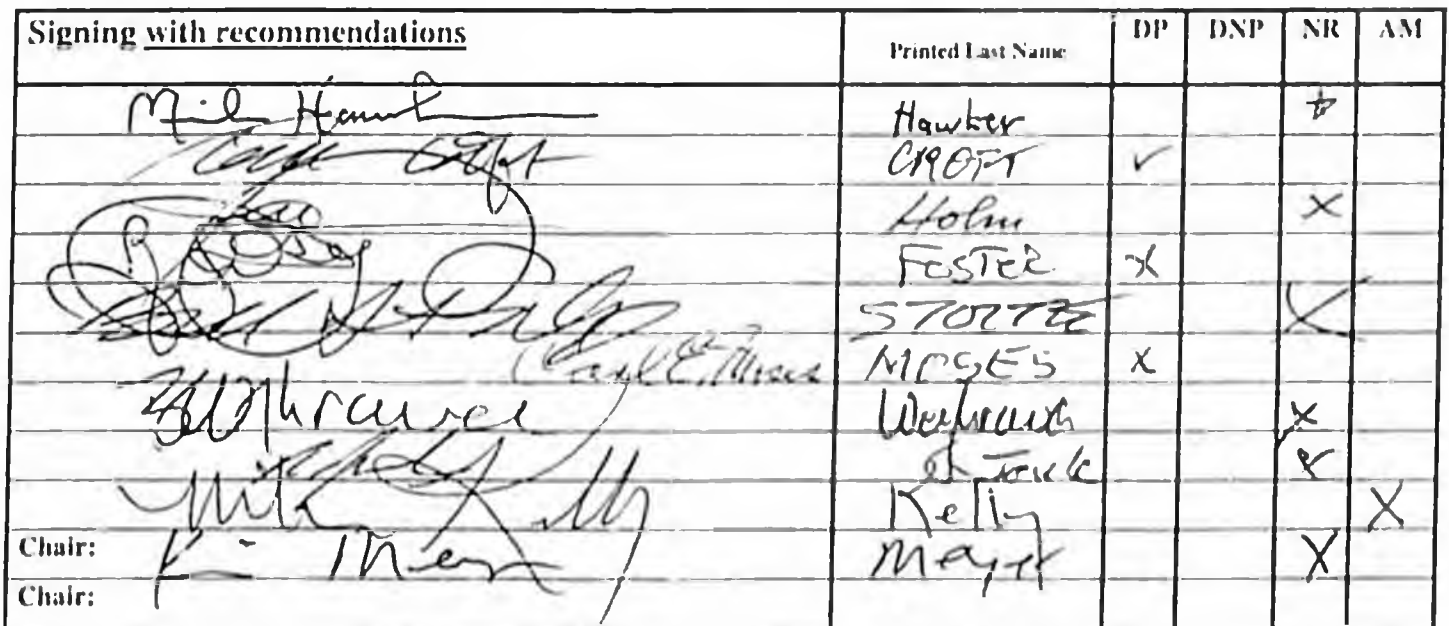 Signing with recommendations Printed Last Name DP DNP NR AM
Mike Hawker Hawker
Croft CROFT ✓
Holm X
FOSTER X
STOLTZE X
Carl E. Moses MOSES X
Weyhrauch X
X
Mike Kelly Kelly X
Chair: Meyer X
Chair: